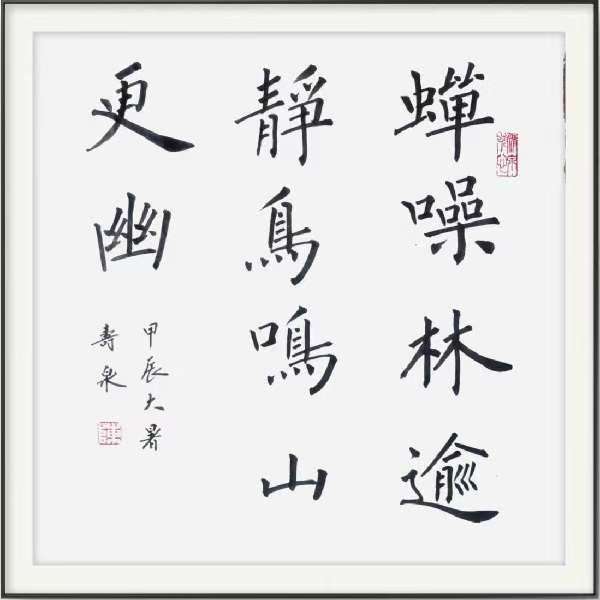 蟬噪林逾
靜鳥鳴山
更幽
甲辰大暑
壽泉